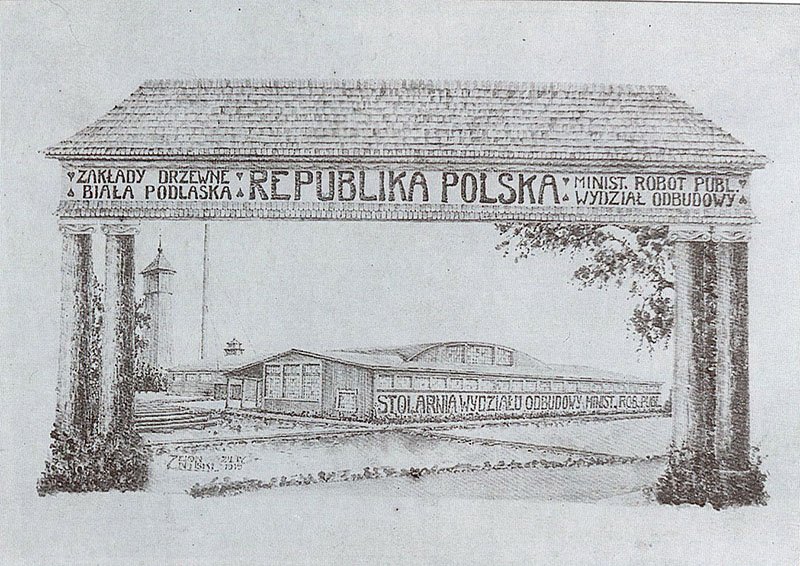 ZAKŁADY DRZEWNE
BIAŁA PODLASKA
REPUBLIKA POLSKA
MINIST. ROBOT PUBL.
WYDZIAŁ ODBUDOWY
STOLARNIA WYDZIAŁU ODBUDOWY MINIST. ROB. PUBL.
1919